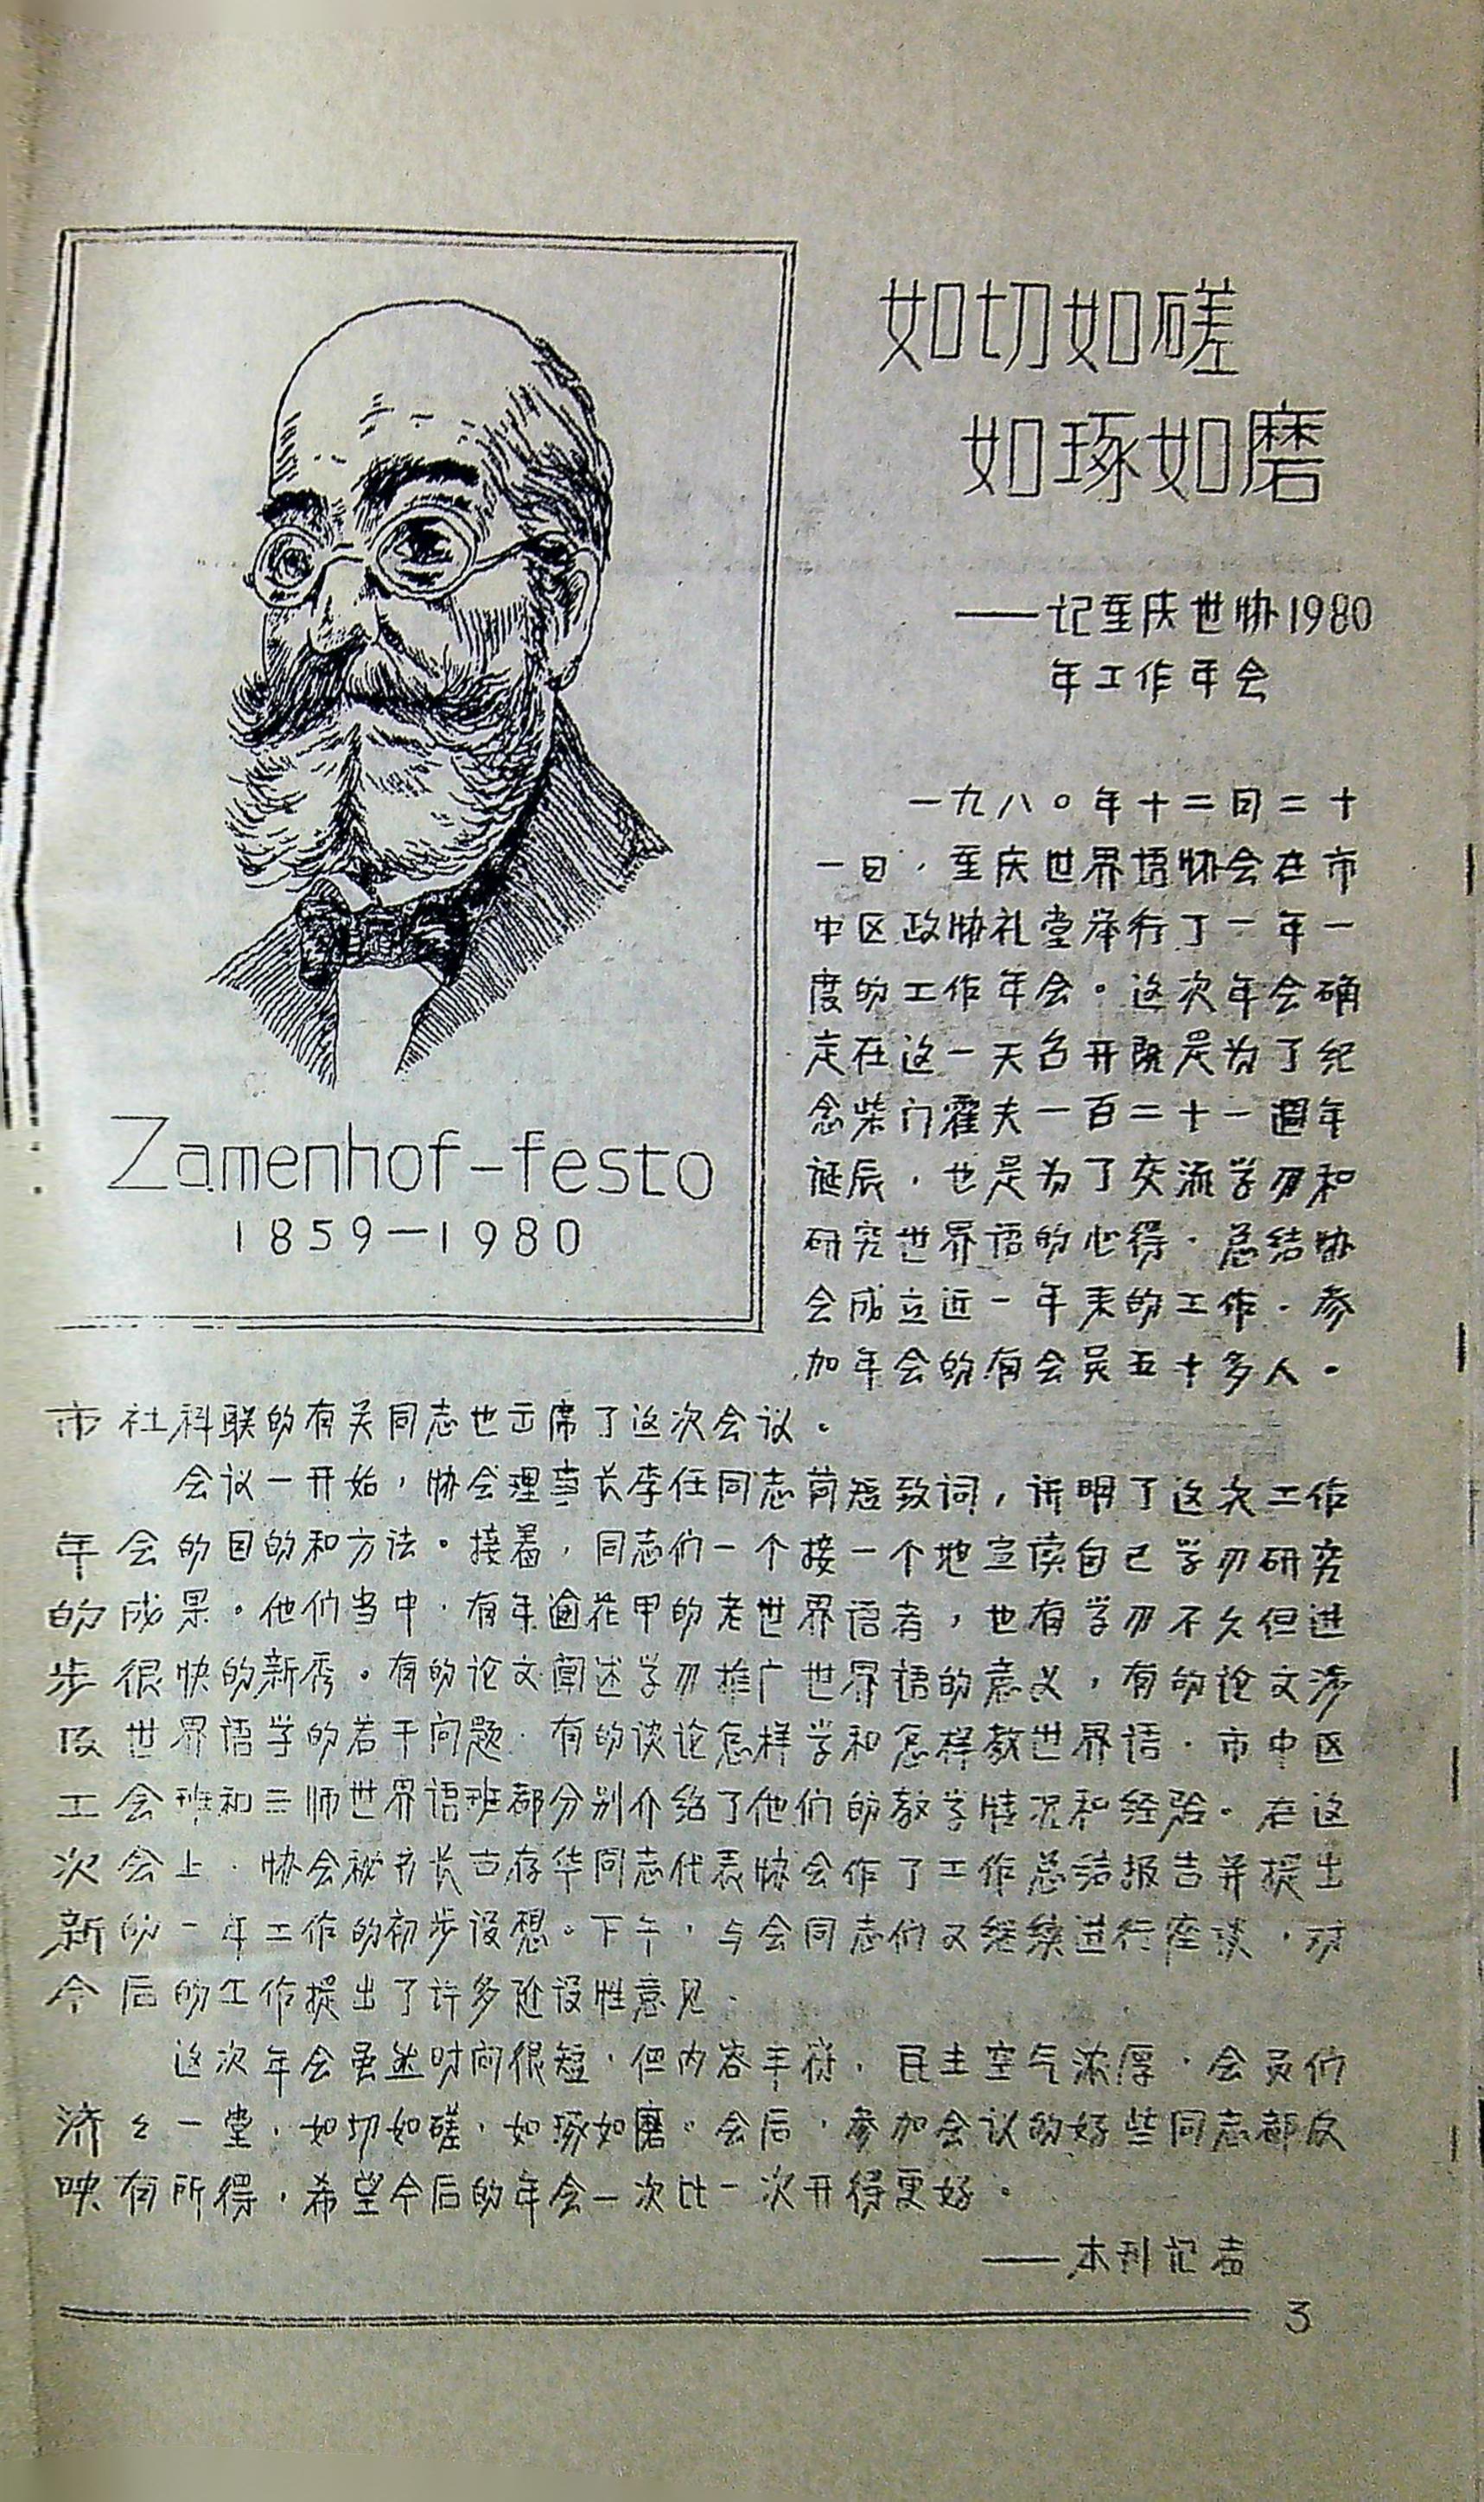 如切如磋
如琢如磨
——记重庆世协1980
年工作年会
Zamenhof-festo
1859—1980
一九八〇年十二月二十
一日，重庆世界语协会在市
中区政协礼堂举行了一年一
度的工作年会。这次年会确
定在这一天召开既是为了纪
念柴门霍夫一百二十一週年
诞辰，也是为了交流学习和
研究世界语的心得，总结协
会成立近一年来的工作。参
加年会的有会员五十多人。
市社科联的有关同志也出席了这次会议。
会议一开始，协会理事长李任同志简短致词，说明了这次工作
年会的目的和方法。接着，同志们一个接一个地宣读自己学习研究
的成果。他们当中，有年逾花甲的老世界语者，也有学习不久但进
步很快的新秀。有的论文阐述学习推广世界语的意义，有的论文涉
及世界语学的若干问题，有的谈论怎样学和怎样教世界语。市中区
工会班和三师世界语班都分别介绍了他们的教学情况和经验。在这
次会上，协会秘书长古存华同志代表协会作了工作总结报告并提出
新的一年工作的初步设想。下午，与会同志们又继续进行座谈，对
今后的工作提出了许多建设性意见。
这次年会虽然时间很短，但内容丰符，民主空气浓厚，会员们
济々一堂，如切如磋，如琢如磨。会后，参加会议的好些同志都反
映有所得，希望今后的年会一次比一次开得更好。
——本刊记者
3